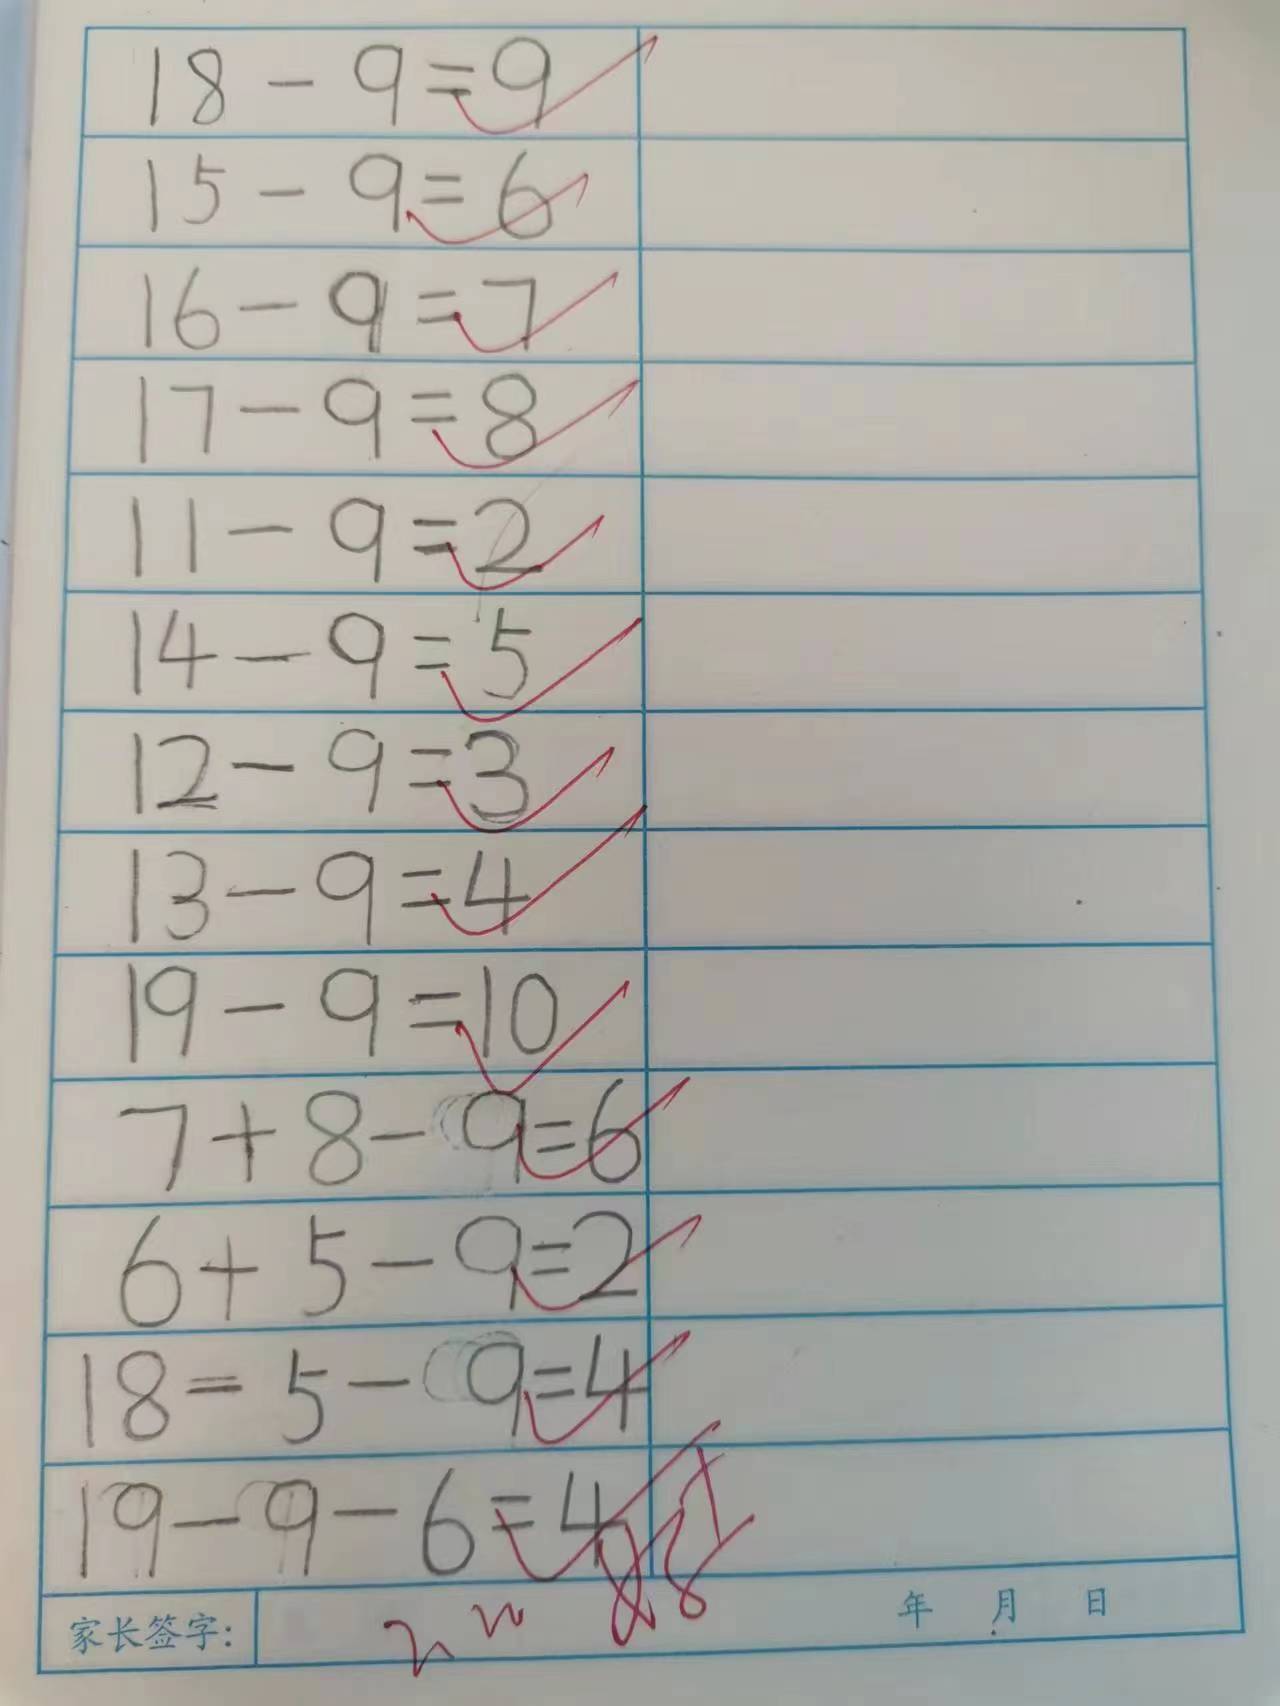 18-9=9
15-9=6
16-9=7
17-9=8
11-9=2
14-9=5
12-9=3
13-9=4
19-9=10
7+8-9=6
6+5-9=2
18-5-9=4
19-9-6=4
家长签字:
年 月 日